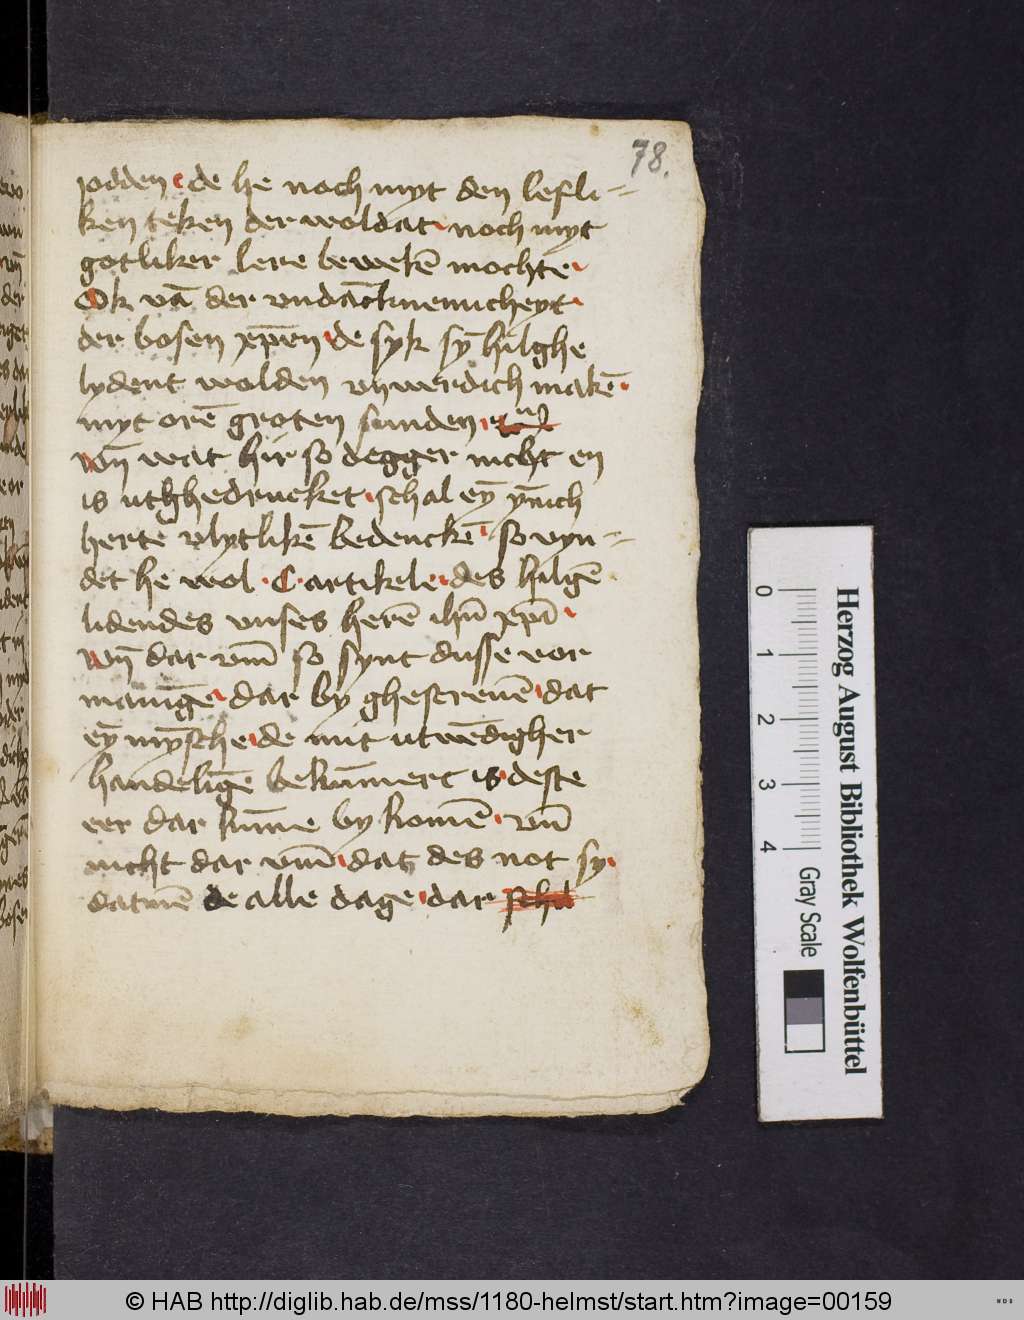 78.
jodden de he noch myt den lefli=
ken teken der woldat noch myt
gotliker lere bewekē mochte
Ok vā der vndācknemicheyt
der bosen xp̄en de syk sȳ hilghe
lydent wolden vnwerdich makē
myt orē groten sunden
vn̄ wat hir so degger nicht en
is uthghedrucket schal eȳ ȳnich
herte vlytlikē bedenckē so vyn=
det he wol · C · artikele des hilgē
lidendes vnses herē ihū xp̄i
vn̄ dar vm̄ so synt dusse vor
manīge dar by ghescreuē dat
eȳ mȳsche de mit utwēdigher
handelīge bekūmert is deste
eer dar kūne by komē vn̄
nicht dar vm̄ dat des not sy
datmē de alle dage dar schal
Herzog August Bibliothek Wolfenbüttel
0 1 2 3 4
Gray Scale
© HAB http://diglib.hab.de/mss/1180-helmst/start.htm?image=00159